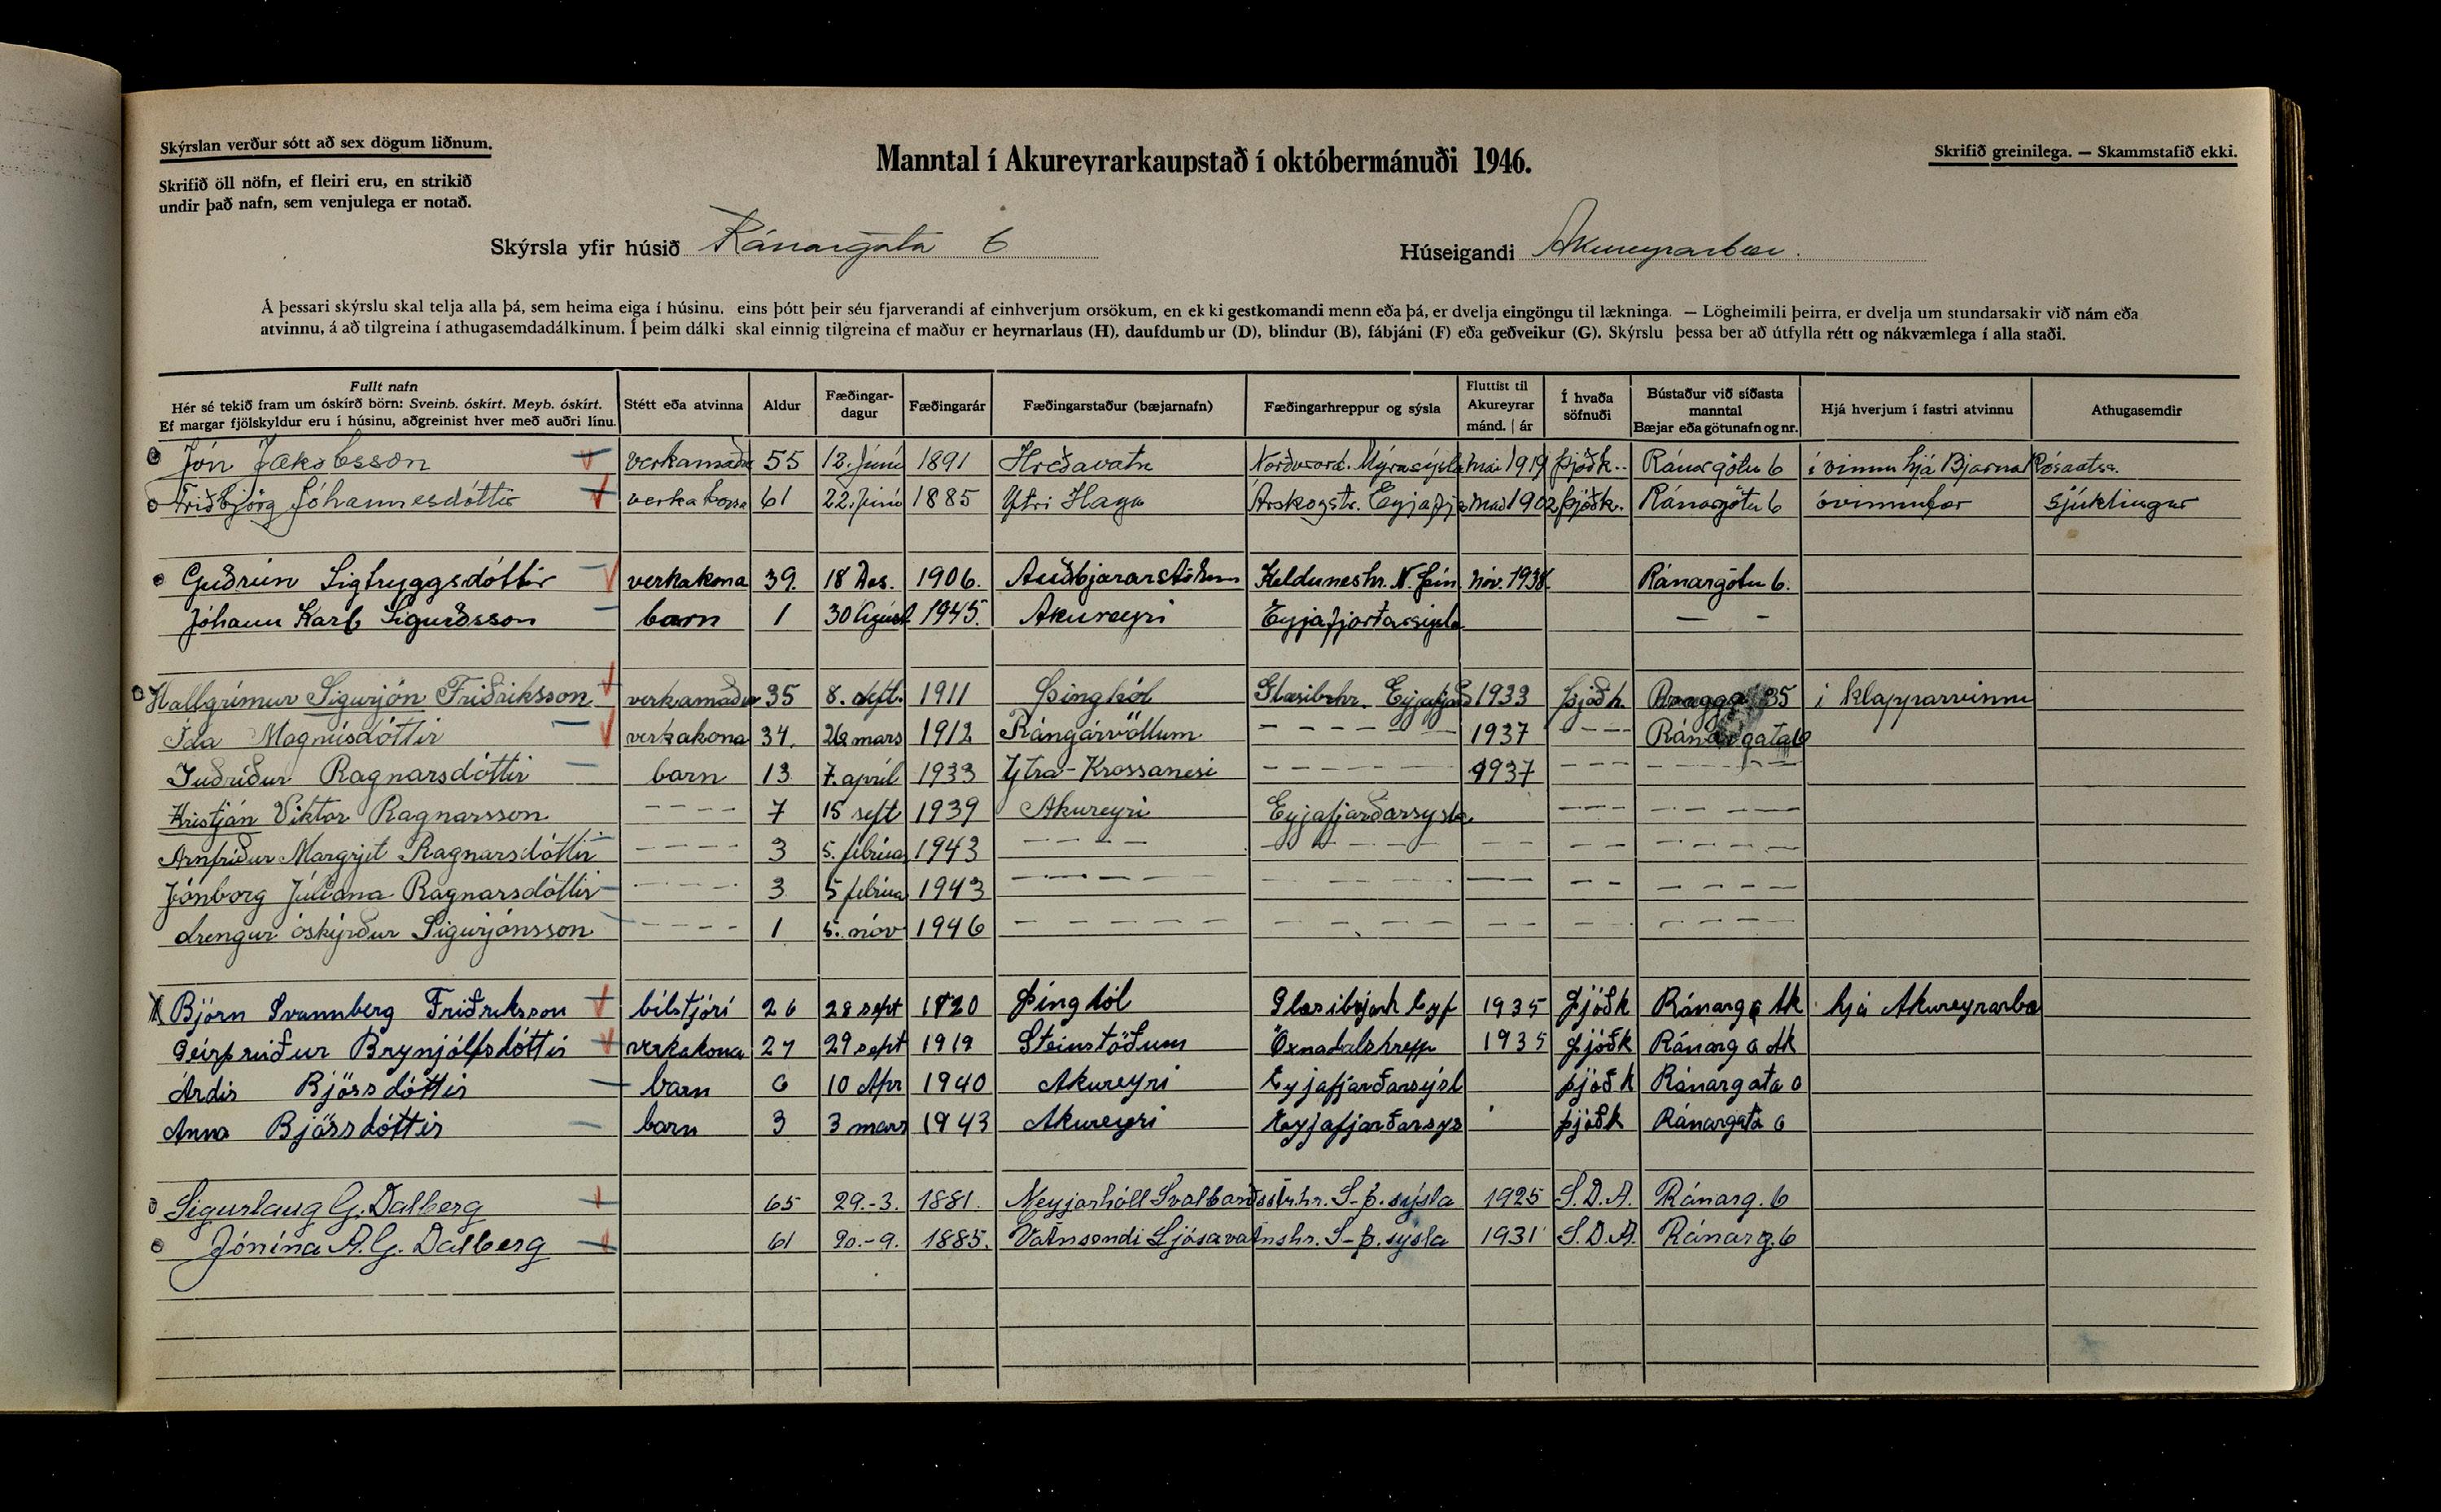 Skýrslan verður sótt að sex dögum liðnum.
Manntal í Akureyrarkaupstað í októbermánuði 1946.
Skrifið greinilega. — Skammstafið ekki.
Skrifið öll nöfn, ef fleiri eru, en strikið
undir það nafn, sem venjulega er notað.
Skýrsla yfir húsið Ránargata 6 Húseigandi Akureyrarbær.
Á þessari skýrslu skal telja alla þá, sem heima eiga í húsinu, eins þótt þeir séu fjarverandi af einhverjum orsökum, en ekki gestkomandi menn eða þá, er dvelja eingöngu til lækninga. — Lögheimili þeirra, er dvelja um stundarsakir við nám eða
atvinnu, á að tilgreina í athugasemdadálkinum. Í þeim dálki skal einnig tilgreina ef maður er heyrnarlaus (H), daufdumbur (D), blindur (B), fábjáni (F) eða geðveikur (G). Skýrslu þessa ber að útfylla rétt og nákvæmlega í alla staði.
Fullt nafn
Hér sé tekið fram um óskírð börn: Sveinb. óskírt. Meyb. óskírt.
Ef margar fjölskyldur eru í húsinu, aðgreinist hver með auðri línu.
Stétt eða atvinna
Aldur
Fæðingar-
dagur
Fæðingarár
Fæðingarstaður (bæjarnafn)
Fæðingarhreppur og sýsla
Fluttist til
Akureyrar
mánd. | ár
Í hvaða
söfnuði
Bústaður við síðasta
manntal
Bæjar eða götunafn og nr.
Hjá hverjum í fastri atvinnu
Athugasemdir
Jón Jakobsson verkamaður 55 12. Júní 1891 Hreðavatn Norðurárd. Mýrasýsla Mai 1919 þjóðk. Ránargötu 6 í vinnu hjá Bjarna
Friðbjörg Jóhannesdóttir verkakona 61 22. Júní 1885 Ytri Haga Árskogstr. Eyjafj Mai 1902 þjóðk. Ránargötu 6 óvinnufær sjúklingur
Guðrún Sigtryggsdóttir verkakona 39. 18 Des. 1906. Kelduneshr. N. Þin Nóv. 1938 Ránargötu 6.
Jóhann Karl Sigurðsson barn 1 30 Ágúst 1945. Akureyri Eyjafjarðarsýsla — -
Hallgrímur Sigurjón Friðriksson verkamaður 35 8. sept. 1911 Þinghól Glæsibhr. Eyjafjord 1933 þjóðk. Bragga 35 í klapparvinnu
Ída Magnúsdóttir verkakona 34. mars 1912 Rángárvöllum - - - - - 1937 - - - Ránargata 6
Guðríður Ragnarsdóttir barn 13 7. apríl 1933 Ytra-Krossanesi - - - - - 1937 - - - - - - -
Kristján Viktor Ragnarsson - - - - 7 15 sept 1939 Akureyri Eyjafjarðarsýsla - - - - - - -
Arnfríður Margrjét Ragnarsdóttir - - - - 3 5. febrúa 1943 - - - - - - - - - - - - - - - - - -
Jónborg Júlíana Ragnarsdóttir - - - - 3 5 febrúa 1943 - - - - - - - - - - - - - - - - - -
drengur óskýrður Sigurjónsson - - - - 1 5. nóv 1946 - - - - - - - - - - - - - - - - - -
Björn Svannberg Friðriksson bílstjóri 26 28 sept 1920 Þinghól Glæsibæjarh Eyf 1935 Þjóðk Ránarg 6 Ak hjá Akureyrarbæ
Geirþrúður Brynjólfsdóttir verkakona 27 29 sept 1919 Steinstöðum Öxnadalshrepp 1935 Þjóðk Ránarg 6 Ak
Árdís Björsdóttir barn 6 10 Apr 1940 Akureyri Eyjafjarðarsýsl þjóðk Ránargata 6
Anna Björsdóttir barn 3 3 mars 1943 Akureyri Eyjafjarðarsýs þjóðk Ránargata 6
Sigurlaug G. Dalberg 65 29.-3. 1881. Meyjarhóll Svalbarðsstr.hr. S-þ. sýsla 1925 S.D.A. Ránarg. 6
Jónína A. G. Dalberg 61 20.-9. 1885. Vatnsendi Ljósavatnshr. S-þ. sýsla 1931 S.D.A. Ránarg. 6